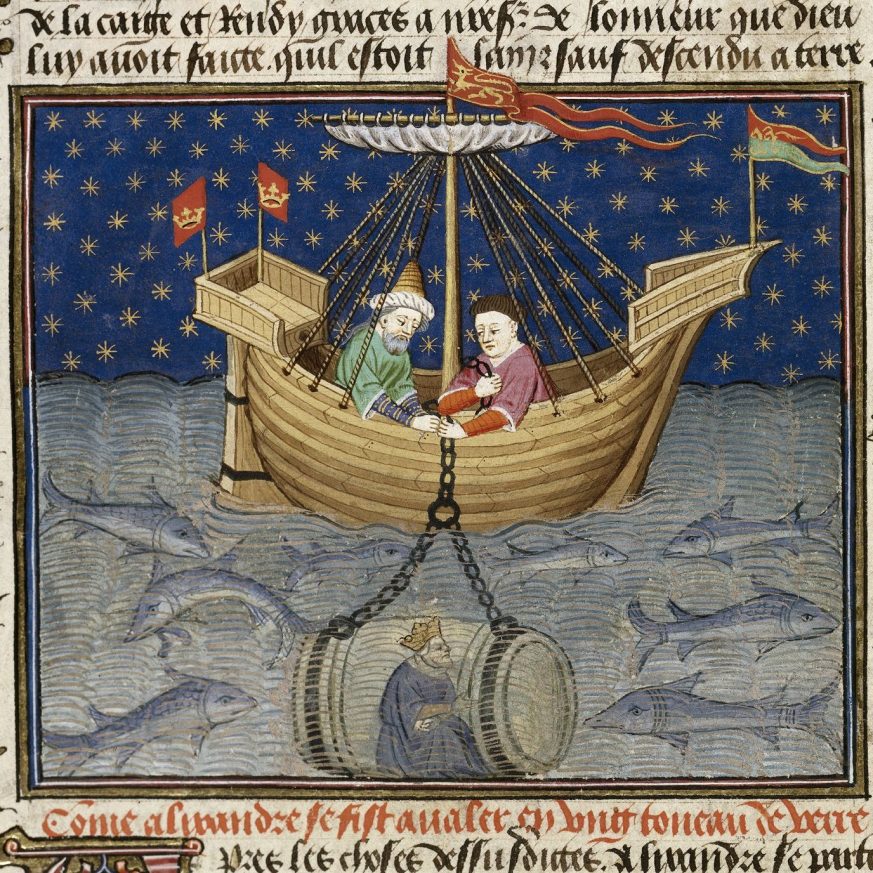 de la caige et rendy graces a nre s.r de lonneur que dieu
luy auoit faicte. quil estoit sain z sauf descendu a terre.
Come alixandre se fist aualer en vng toneau de verre
pres les choses dessusdictes. Alixandre se parti